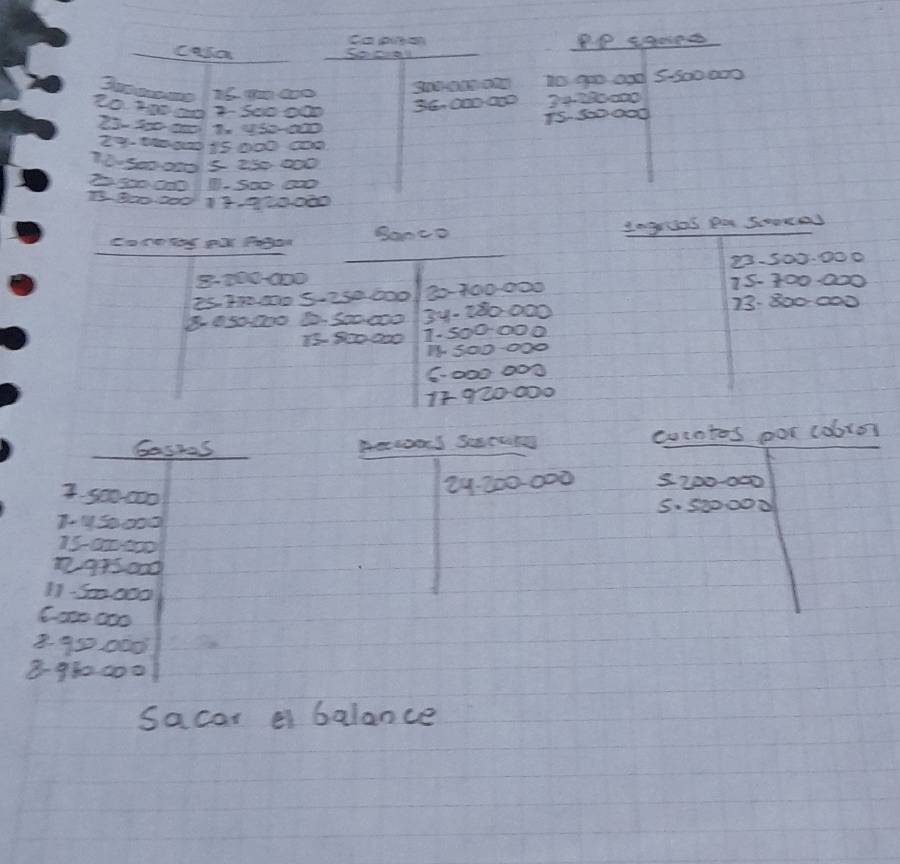 Caja
300.000.000
20.700.000 7.500.000
23.500.000 1.450.000
15.000.000
10.500.000 5.250.000
20.500.000 11.500.000
13.800.000 17.920.000
Capital
Social
300.000.000
36.000.000
P.P equipo
10.900.000 5.500.000
34.280.000
15.500.000
por Pagar
8.200.000
Banco
5.250.000 20.700.000
20.500.000 34.280.000
13.800.000 1.500.000
11.500.000
6.000.000
17.920.000
Ingresos por
23.500.000
15.700.000
13.800.000
Gastos
7.500.000
1.450.000
15.000.000
12.975.000
11.500.000
6.000.000
8.950.000
8.960.000
24.200.000
cuentas por cobrar
5.200.000
5.520.000
Sacar el balance